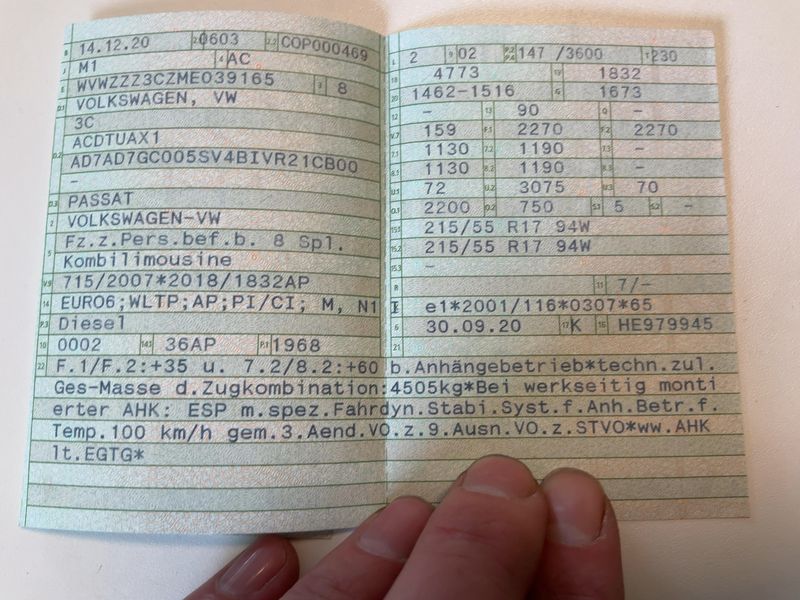 B 14.12.20 2.1 0603 2.2 COP000469
J M1 4 AC
E WVWZZZ3CZME039165 3 8
D.1 VOLKSWAGEN, VW
3C
D.2 ACDTUAX1
AD7AD7GC005SV4BIVR21CB00
-
D.3 PASSAT
2 VOLKSWAGEN-VW
5 Fz.z.Pers.bef.b. 8 Spl.
Kombilimousine
V.9 715/2007*2018/1832AP
14 EURO6;WLTP;AP;PI/CI; M, N1 I
P.3 Diesel
10 0002 14.1 36AP P.1 1968
L 2 9 02 P.2 P.4 147 /3600 T 230
18 4773 19 1832
20 1462-1516 G 1673
12 - 13 90 Q -
V.7 159 F.1 2270 F.2 2270
7.1 1130 7.2 1190 7.3 -
8.1 1130 8.2 1190 8.3 -
U.1 72 U.2 3075 U.3 70
O.1 2200 O.2 750 S.1 5 S.2 -
15.1 215/55 R17 94W
15.2 215/55 R17 94W
15.3 -
R 11 7/-
e1*2001/116*0307*65
6 30.09.20 17 K 16 HE979945
21
22 F.1/F.2:+35 u. 7.2/8.2:+60 b.Anhängebetrieb*techn.zul.
Ges-Masse d.Zugkombination:4505kg*Bei werkseitig monti
erter AHK: ESP m.spez.Fahrdyn.Stabi.Syst.f.Anh.Betr.f.
Temp.100 km/h gem.3.Aend.VO.z.9.Ausn.VO.z.STVO*ww.AHK
lt.EGTG*